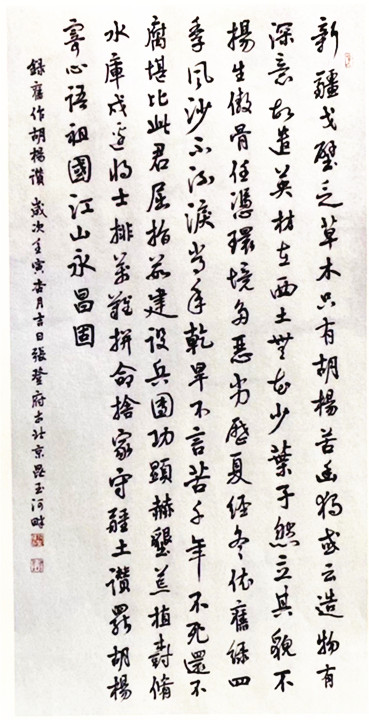 新疆戈壁乏草木只有胡楊苦幽獨或云造物有
深意故遣英材在西土無花少葉孑然立其貌不
揚生傲骨任憑環境多惡劣歷夏經冬依舊綠四
季風沙不流淚常年乾旱不言苦千年不死還不
腐堪比此君屈指數建設兵團功顯赫墾荒植樹脩
水庫戍邊將士排萬難拼命捨家守疆土讚罷胡楊
寄心語祖國江山永昌固
錄舊作胡楊讚 歲次壬寅杏月吉日張登府於北京昆玉河畔